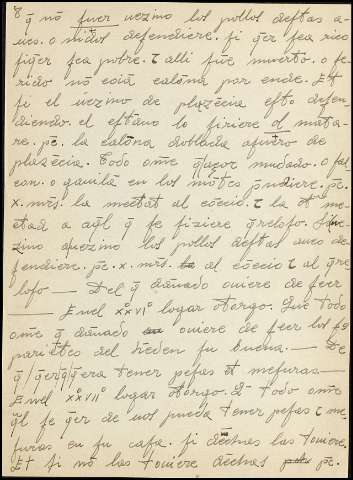 q̄ nō fuer uezino los pollos destas a-
ues. o nidos defendiere. si q̄er sea rico
siq̄er sea pobre. τ alli fue muerto. o fe-
rido nō exiā calōna por ende. Et
si el uezino de plazēcia esto defen-
diendo. el estano lo firiere ol mata-
re. pc̄. la calōna doblada a fuero de
plazēcia. Todo om̄e q̄ açor mudado. o fal
con. o gauilā en los mōtes p̄ndiere. pc̄.
x. mr̄s. la metat al cōceio. τ la ot̄ me-
etad a aq̄l q̄ se fiziere q̄reloso. Si ue-
zino a uezino los pollos destas aues de-
fendiere. pc̄. x. mr̄s. al cōceio τ al q̄re
loso — Del q̄ dānado ouiere de seer
— Enel xxvi° logar otorgo. Que todo
om̄e q̄ dānado ouiere de seer los sos
pariētes del h̄eden su buena. — De
q̄ q̄era tener pesas et mesuras —
Enel xxvii° logar otorgo. Q̄ todo om̄e
q̄l se q̄er de uos pueda tener pesas τ me-
suras en su casa. si dr̄chas las touiere.
Et si nō las touiere dr̄chas pc̄.